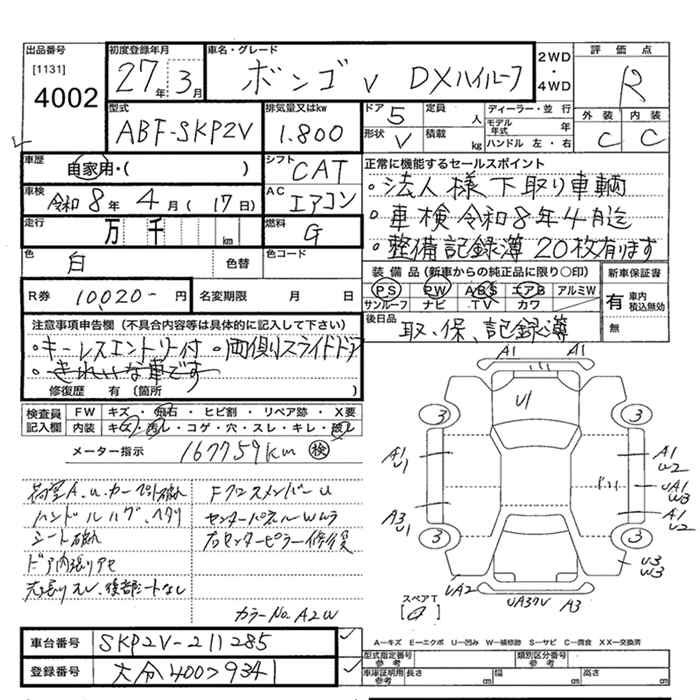 出品番号
[1131]
4002
初度登録年月
27年 3月
車名・グレード
ボンゴ V DXハイルーフ
2WD
・
4WD
評価点
R
型式
ABF-SKP2V
排気量又はkw
1.800
ドア 5
定員 人
形状 V
積載 kg
ディーラー・並 行
モデル年式 年
ハンドル 左・右
外装 内装
C C
車歴
自家用・( )
シフト
CAT
車検
令和 8年 4月(17日)
AC
エアコン
走行
万 千 km
燃料
G
色
白
色替
色コード
R券 10,020- 円
名変期限 月 日
正常に機能するセールスポイント
。法人様下取り車輌
。車検令和8年4月迄
。整備記録簿 20枚有ります
装備品(新車からの純正品に限り○印)
PS PW ABS エアB アルミW
サンルーフ ナビ TV カワ
新車保証書
有 車内積込無効
無
後日品
取、保、記録簿
注意事項申告欄(不具合内容等は具体的に記入して下さい)
。キーレスエントリー付 。両側スライドドア
。きれいな車です
修復歴 有(箇所 )
検査員記入欄
FW キズ・飛石・ヒビ割・リペア跡・X要
内装 キズ・汚レ・コゲ・穴・スレ・キレ・破レ
メーター指示 167759km 検
荷室A.U.カープ破れ
ハンドルハゲ、ヘタリ
シート破れ
ドア内張りアセ
天張りスレ、後部シートなし
FクロスメンバーU
センターパネルWムラ
右センターピラー修復
カラーNo. A2W
車台番号 SKP2V-211285
登録番号 大分400つ9341
A1 A1
U1
3 3
A1
U1
A1
U2
UA1
W3
A3
U1
A1
U2
3 3
U3
W3
UA2
A3
スペアT
A−キズ E−エクボ U−凹み W−補修跡 S−サビ C−腐食 XX−交換済
型式指定番号 参考
類別区分番号 参考
車庫証明用 参考
長さ cm
幅 cm
高さ cm